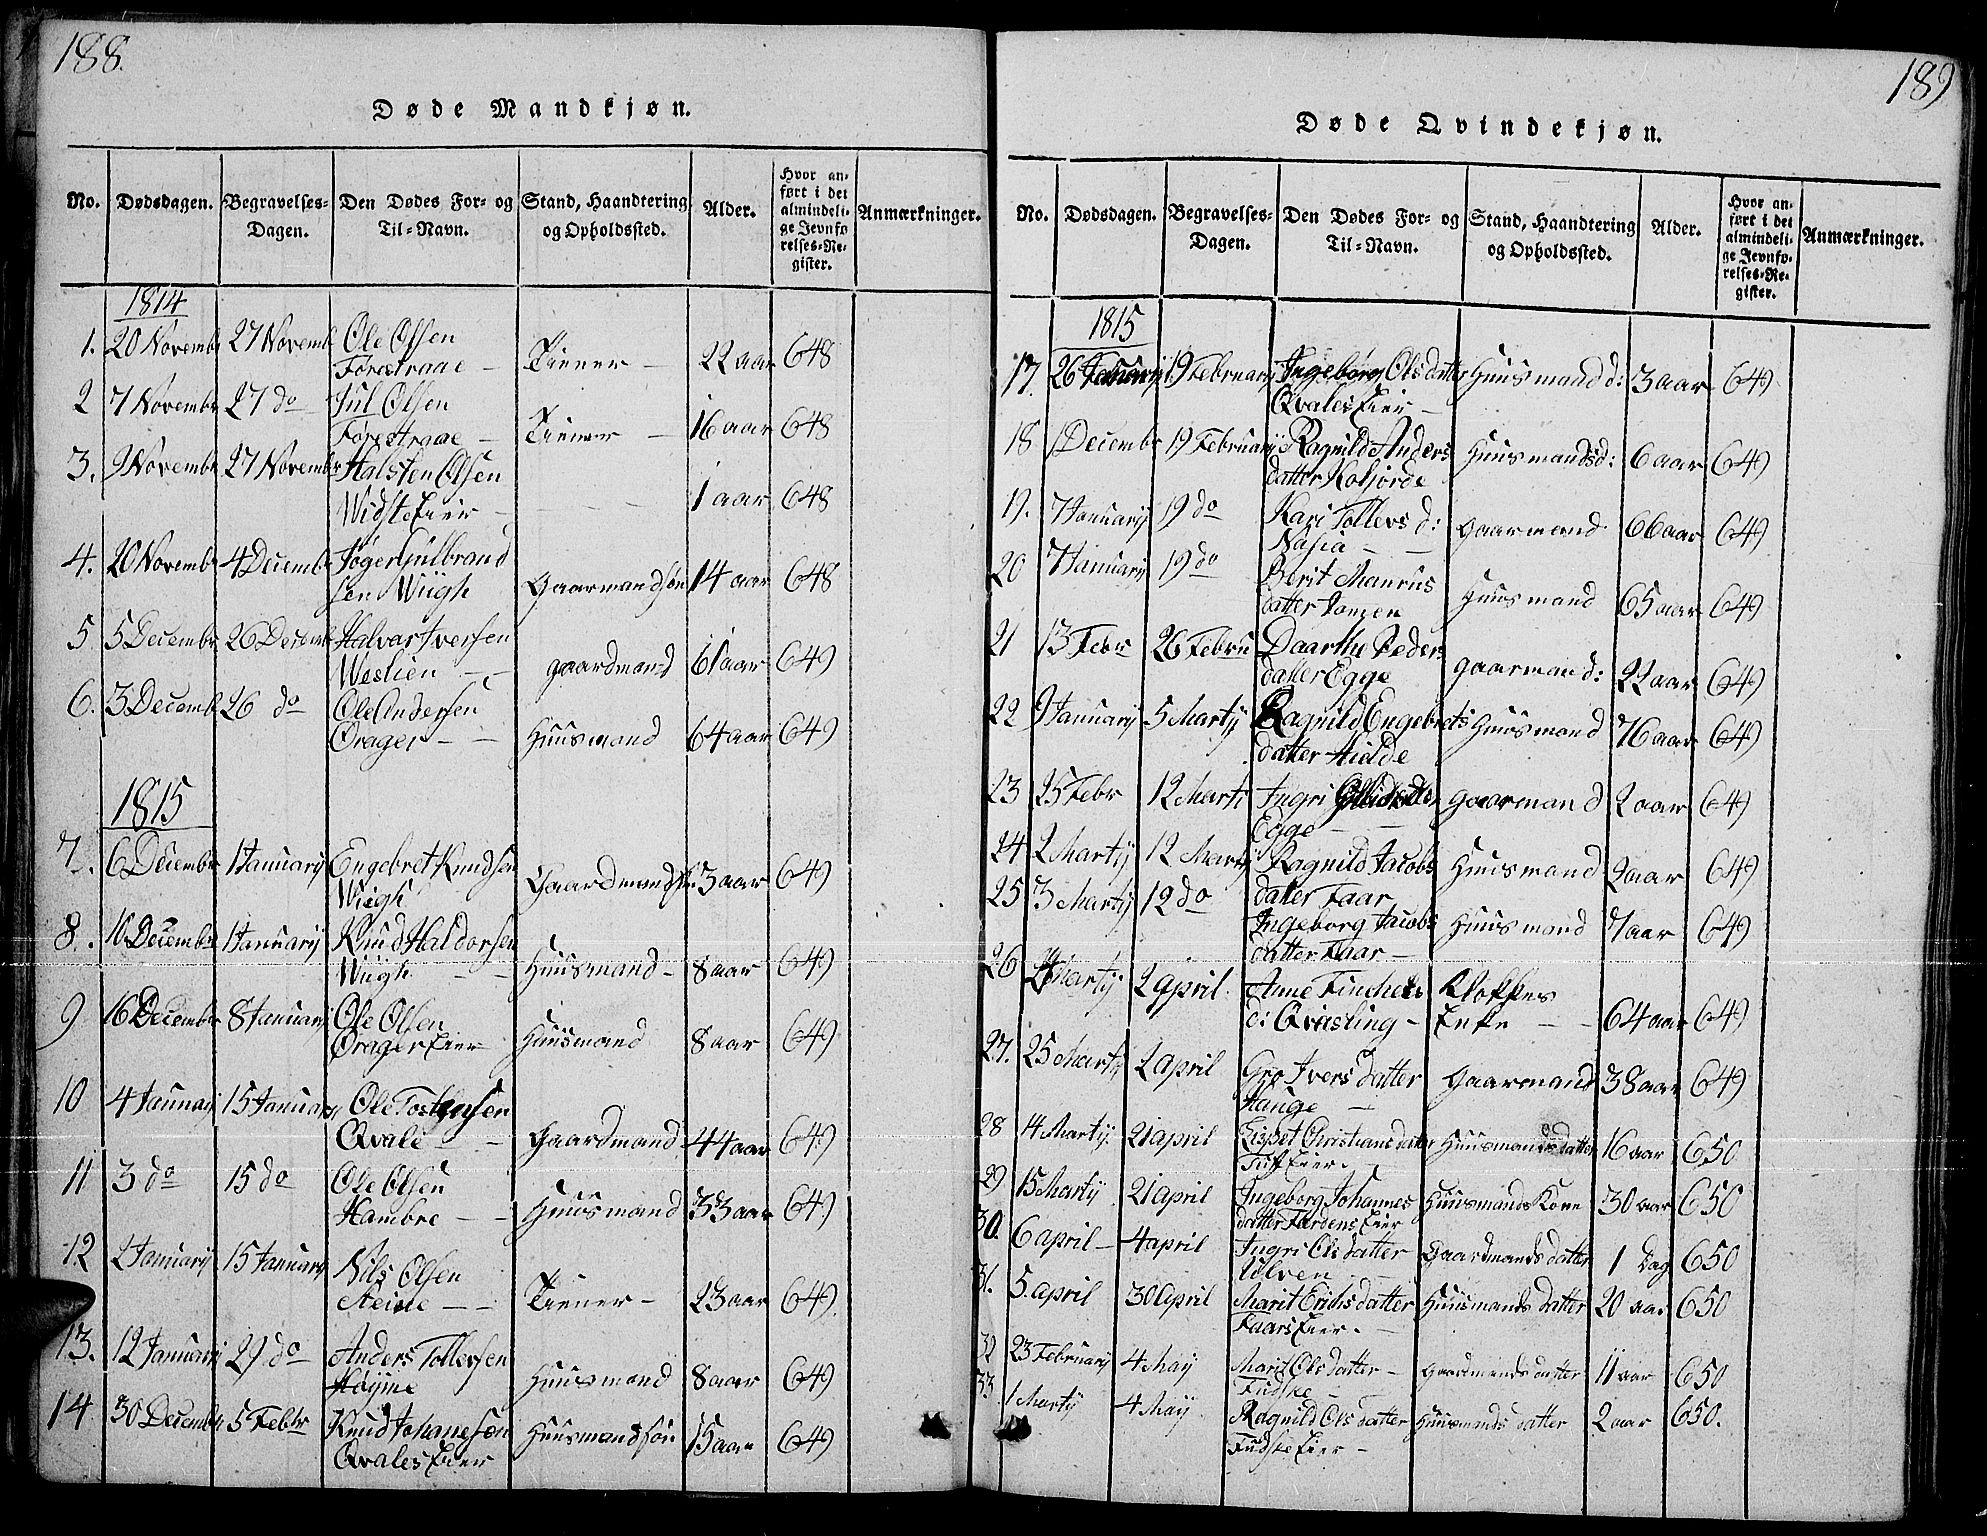 188.
Døde Mandkjøn.
No. Dødsdagen. Begravelses-Dagen. Den Dødes For- og Til-Navn. Stand, Haandtering og Opholdssted. Alder. Hvor anført i det almindelige Jevnførelses-Register. Anmærkninger.
1814
1. 20 Novembr 27 Novemb Ole Olsen
Tiener 22 aar 648
2 7 Novembr 27 do Jul Olsen
Tiener 16 aar 648
3. 9 Novembr 27 Novembr Halsten Olsen
Widste Eier 1 aar 648
4. 20 Novembr 4 Decembr Jøger Gulbrand
sen Wiigh Gaarmandsøn 14 aar 648
5 5 Decembr 26 Decemb Halvar Iversen
Weslien gaardmand 61 aar 649
6. 3 Decemb 26 do Ole Andersen
Drager Huusmand 64 aar 649
1815
7. 6 Decembr 1 Januarij Engebret Knudsen
Wiigh Gaardmands 3 aar 649
8. 10 Decembr 1 Januarij Knud Haldorsen
Wiigh Huusmand 8 aar 649
9 16 Decembr 8 Januarij Ole Olsen
Drager Eier Huusmand 8 aar 649
10 4 Januarij 15 Januarij Ole Tostensen
Qvale Gaardmand 44 aar 649
11 3 do 15 do Ole Olsen
Hambre Huusmand 33 aar 649
12 2 Januarij 15 Januarij Nils Olsen
Steine Tiener 23 aar 649
13. 12 Januarij 29 do Anders Tollevsen
Høyne Huusmand 8 aar 649
14 30 Decembr 5 Febr Knud Johanesen
Qvales Eier Huusmandsøn 15 aar 649
189
Døde Qvindekjøn.
No. Dødsdagen. Begravelses-Dagen. Den Dødes For- og Til-Navn. Stand, Haandtering og Opholdssted. Alder. Hvor anført i det almindelige Jevnførelses-Register. Anmærkninger.
1815
17. 26 Januarij 19 Februarij Ingeborg Olsdatter Huusmandd: 3 aar 649
Qvales Eier
18 1 Decembr 19 Februarij Ragnild Anders
datter Kolsorde Huusmandsd: 6 aar 649
19. 7 Januarij 19 do Kari Tollevs d:
Nasia gaarmand 66 aar 649
20 7 Januarij 19 do Berit Manrus
datter Tomen Huusmand 65 aar 649
21 13 Febr 26 Febru Daarthe Peders
datter Egge gaarmand: 22 aar 649
22 9 Januarij 5 Martij Ragnild Engebrets Huusmand 76 aar 649
datter Hielde
23 25 Febr 12 Marti Ingri gaarmand 2 aar 649
Egge
24 2 Martij 12 Martij Ragnild Jacobs Huusmand 2 aar 649
datter Faar
25 3 Martij 12 do Ingeborg Jacobs Huusmand 7 aar 649
datter Faar
26 Martij 2 april Anne Finchels Klokker
d: Qvisling Enke 64 aar 649
27. 25 Martij 2 april Gro Ivers datter Gaarmand 38 aar 649
Hauge
28 14 Martij 21 april Lispet Christiansdatter Huusmandsdatter 16 aar 650
Tuf Eier
29 15 Martij 21 april Ingeborg Johannes Huusmands Kone 30 aar 650
datter Fardens Eier
30. 6 april 4 april Ingri Olsdatter Gaardmandsdatter 1 Dag 650
Ulven
31. 5. april 30 April Marit Erichsdatter Huusmandsdatter 20 aar 650
Faars Eier
32 23 Februarij 4 Maij Marit Olsdatter Gaardmandsdatter 11 aar 650
Fudske
33 1 Martij 4 Maij Ragnild Olsdatter Huusmandsdatter 2 aar 650.
Fudske Eier